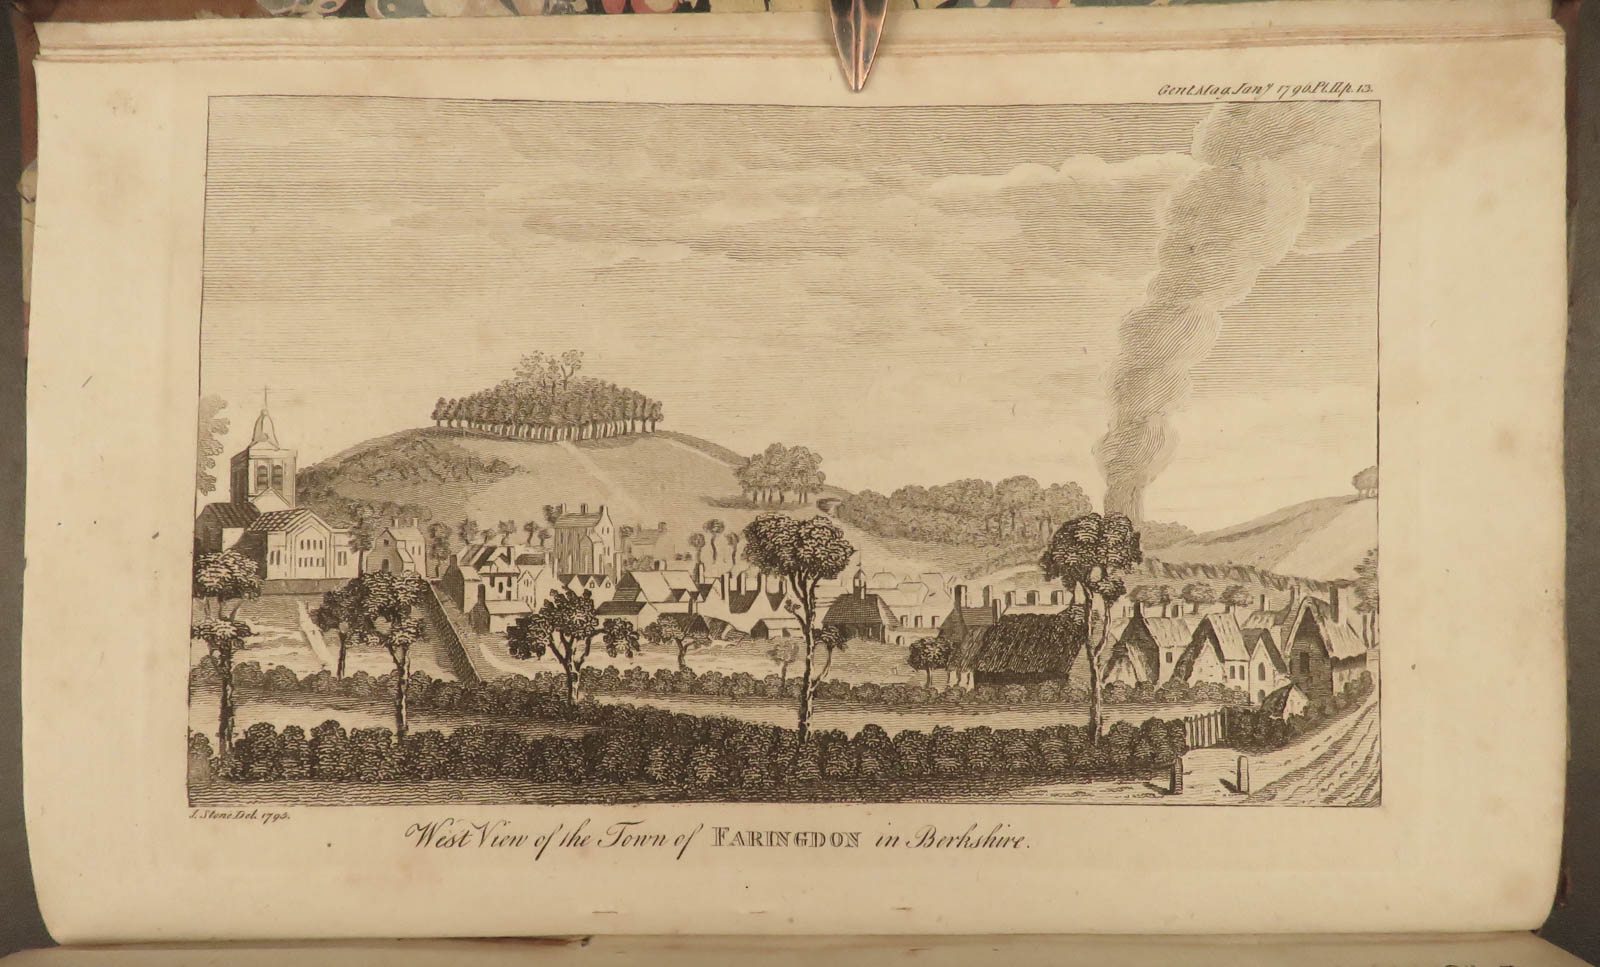 Gent. Mag. Jan.y 1796. Pl. II. p. 13.
J. Stone Del. 1795.
West View of the Town of FARINGDON in Berkshire.